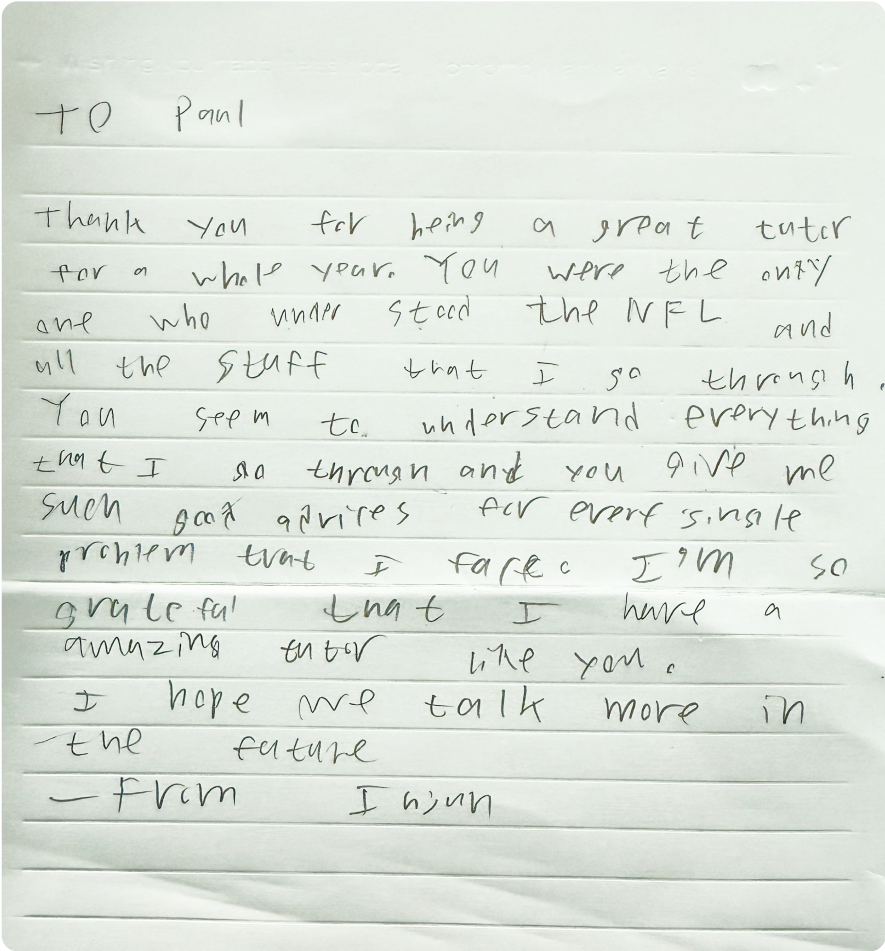 TO Paul
Thank you for being a great tutor
for a whole year. You were the only
one who under stood the NFL and
all the stuff that I go through.
You seem to understand everything
that I go through and you give me
such good advices for every single
problem that I face. I'm so
grateful that I have a
amazing tutor like you.
I hope we talk more in
the future
- From Injun